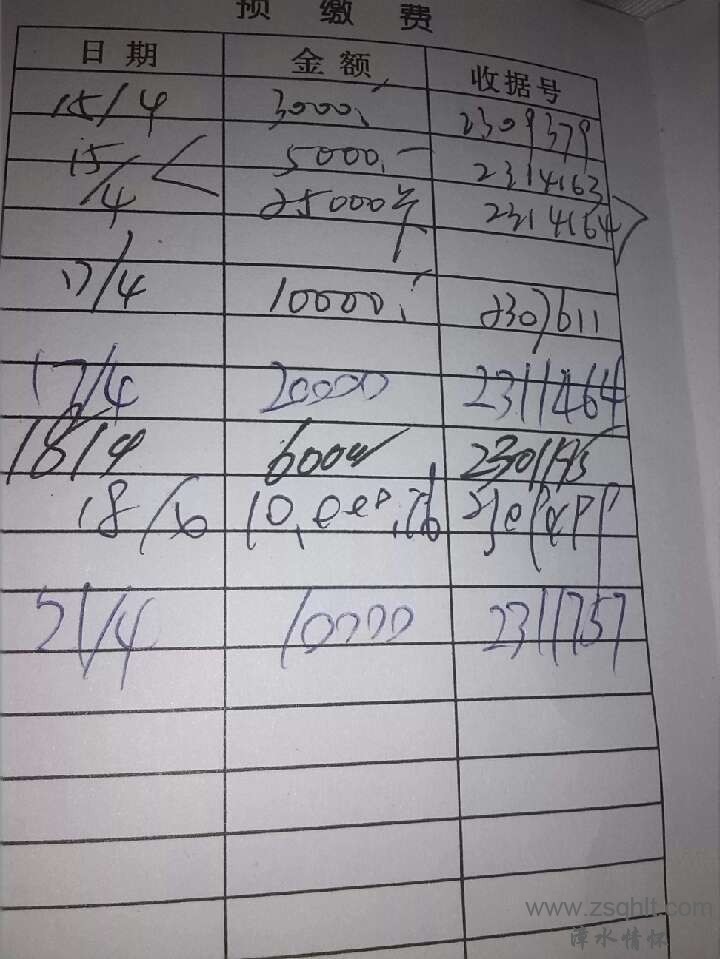 预缴费
日期 金额 收据号
15/4 3000.- 2309379
15/4 5000.- 2314163
25000 2314164
17/4 10000.- 2307611
17/4 20000 2311464
18/4 6000
18/
21/4 10000 2311757
www.zsqhlt.com
漳水情怀